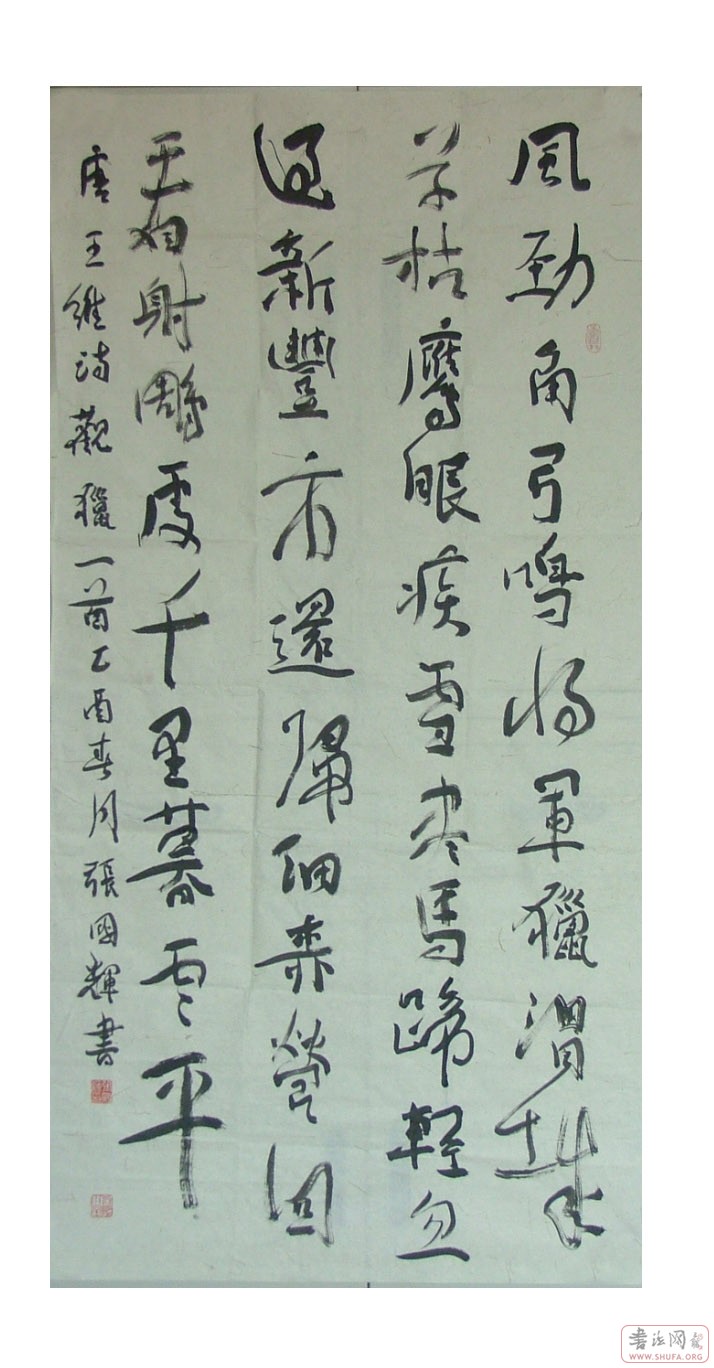 風勁角弓鳴將軍獵渭城
草枯鷹眼疾雪盡馬蹄輕忽
過新豐市還歸細柳營回
看射雕處千里暮雲平
唐王維詩觀獵一首乙酉春月張國輝書
書法网
WWW.SHUFA.ORG